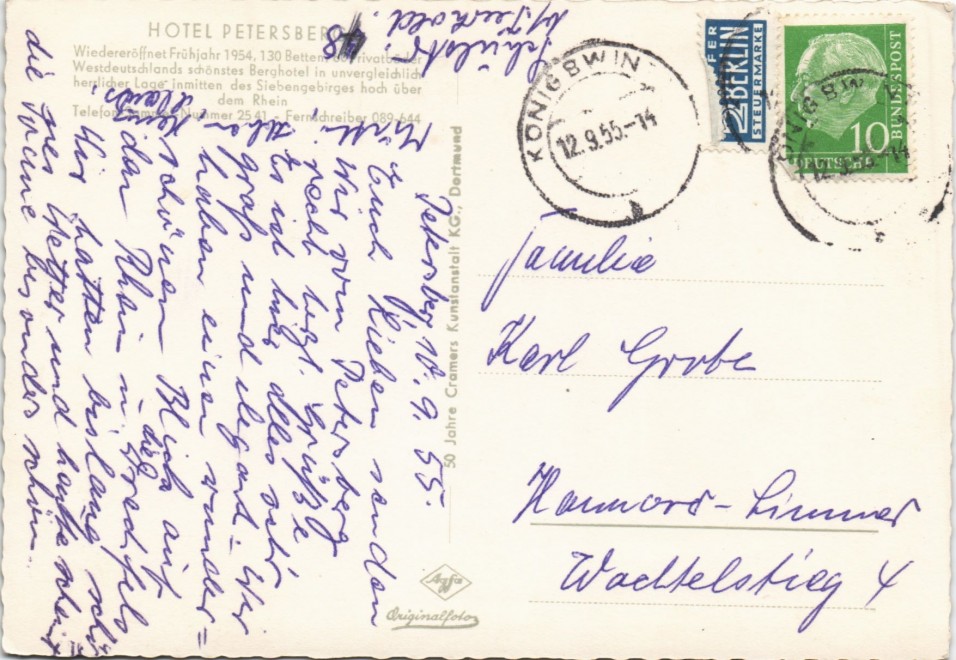 HOTEL PETERSBERG
Wiedereröffnet Frühjahr 1954, 130 Betten,
Westdeutschlands schönstes Berghotel in unvergleichlich
herrlicher Lage inmitten des Siebengebirges hoch über
dem Rhein
Nummer 25 41 - Fernschreiber 089-644
50 Jahre Cramers Kunstanstalt KG., Dortmund
Agfa
Originalfoto
KÖNIGSWIN
12.9.55.-14
BERLIN
STEUERMARKE
2
DEUTSCHE
BUNDESPOST
10
Petersberg 10. 9. 55.
Euch Lieben senden
wir vom Petersberg
recht herzl. Grüße
Es ist hier alles sehr
groß und elegant. Wir
haben einen wunder=
schönen Blick auf
den Rhein
Wir hatten bislang sehr
gutes Wetter und heute scheint
die Sonne besonders schön.
Familie
Karl Grobe
Hannover-Limmer
Wachtelstieg 4